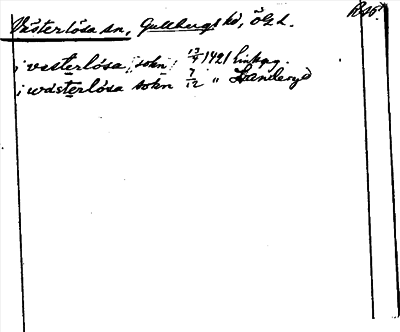 Västerlösa sn, Gullbergs hd, Ög l.
i vesterlösa sokn 13/9 1421 Linkpg.
i wästerlösa sokn 7/12 " Landeryd